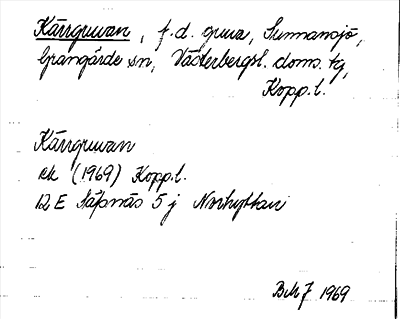 Kärrgruvan, f.d. gruva, Sunnansjö,
Grangärde sn, Västerbergsl. doms. tg,
Kopp.l.
Kärrgruvan
ek (1969) Kopp.l.
12E Säfsnäs 5j Norhyttan
BMJ 1969